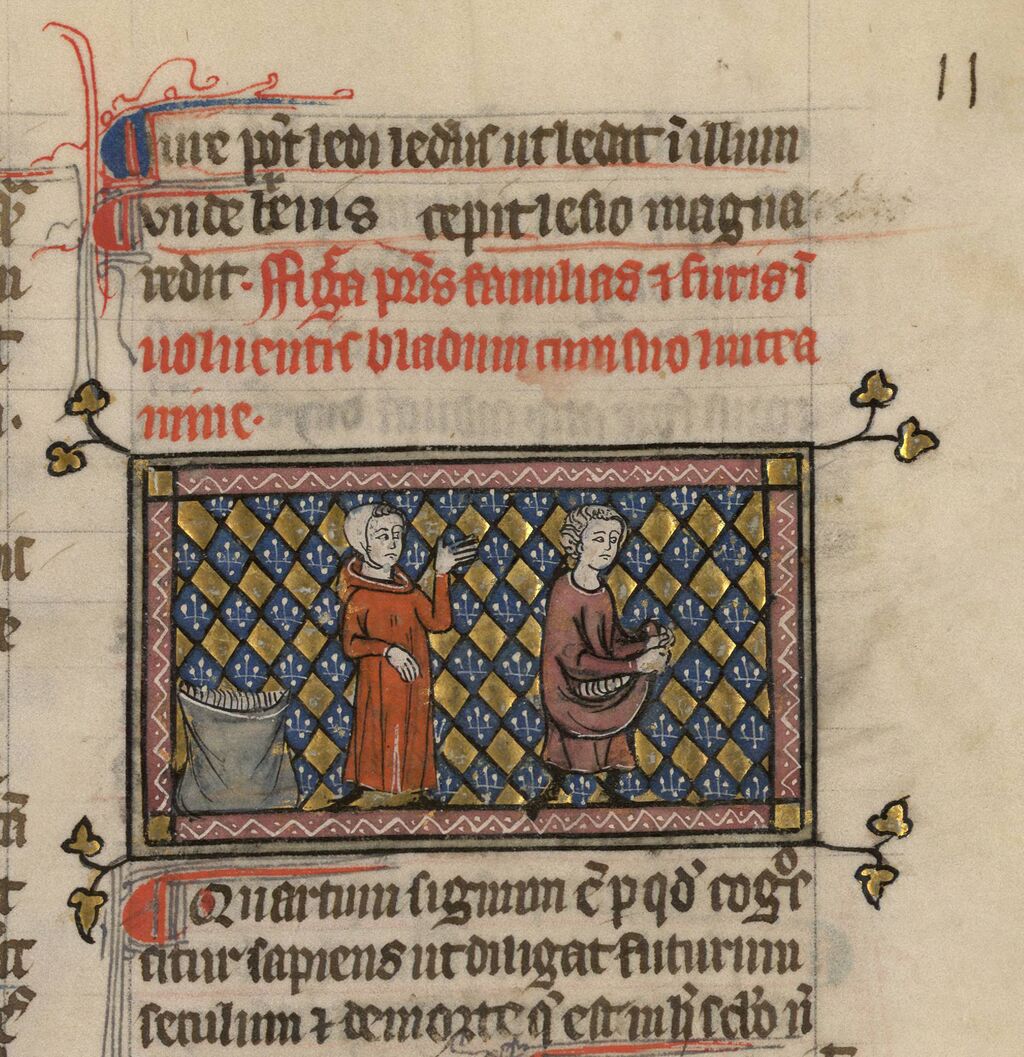 11
Iure pōt ledi ledēs ut ledat ī illum
vnde breuis cepit lesio magna
redit. Figᵃa pr̄is familias ⁊ furis ī
uoluentis bladum cum suo lintea
mine.
Quartum signum ē p qd'
citur sapiens ut diligat futurum
seculum ⁊ de morte q̄ est in h' sc̄lo n̄